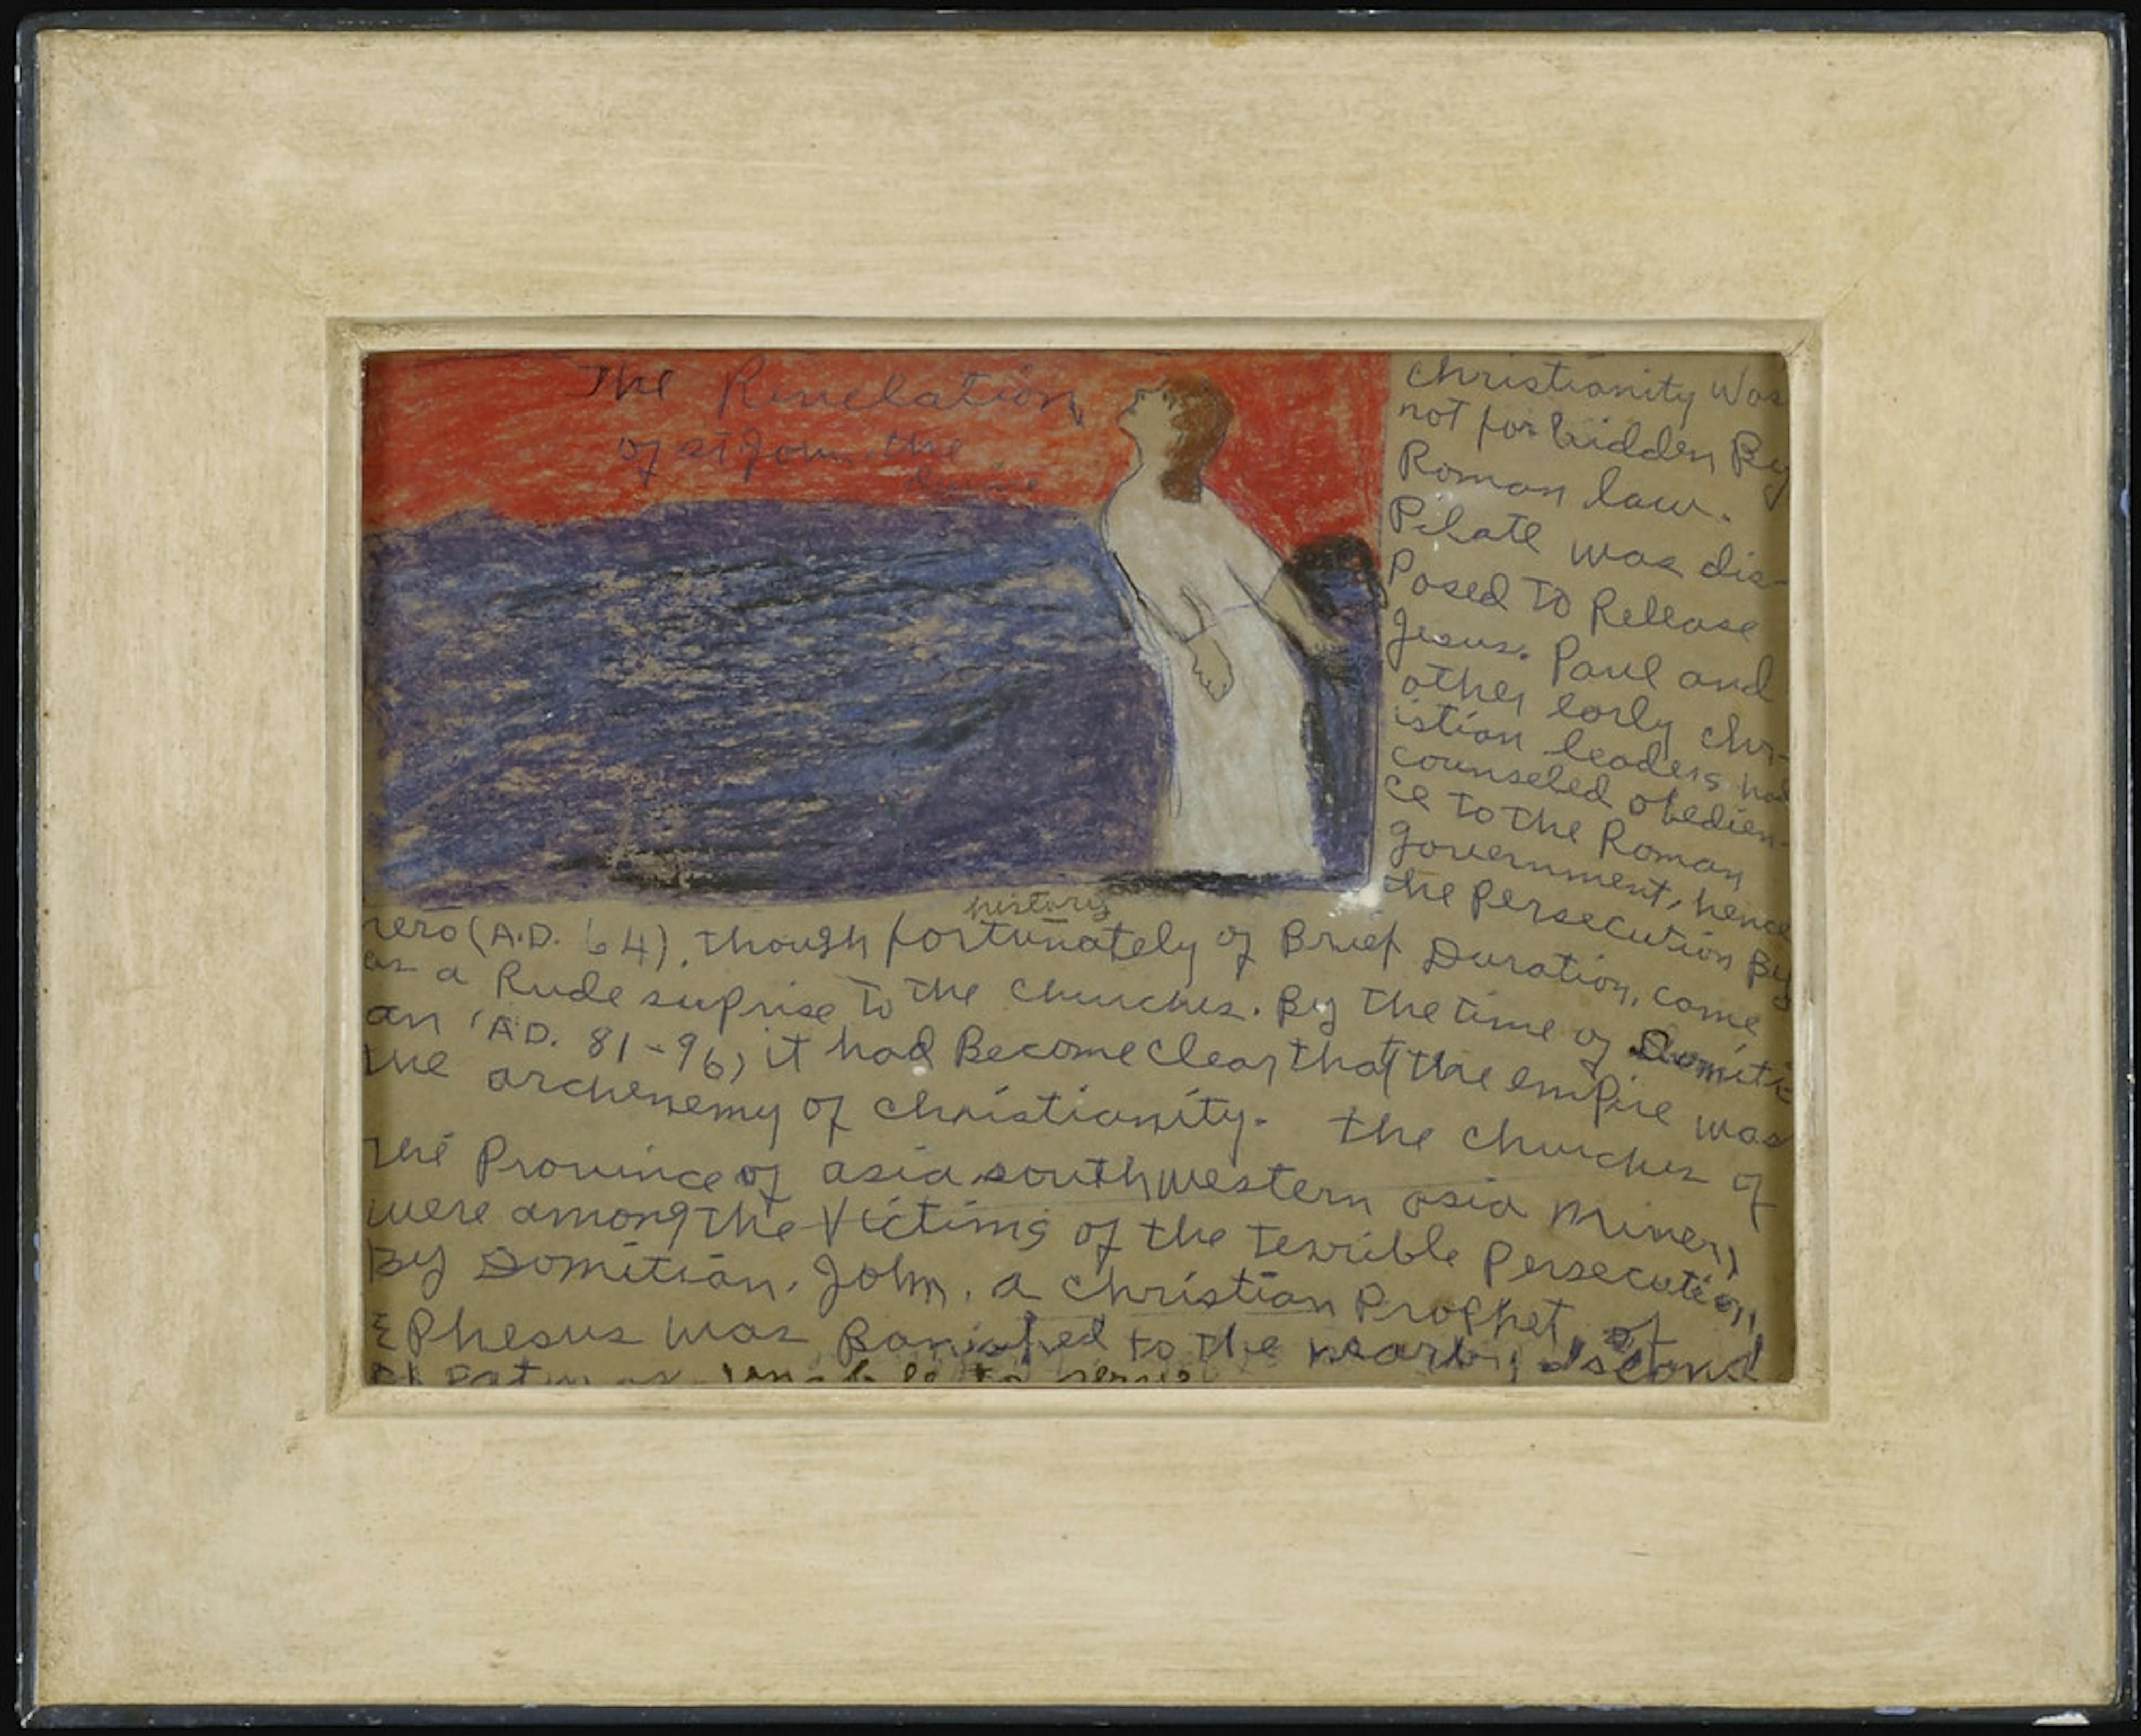 The Revelation
of st John the
divine
christianity Was
not forbidden By
Roman law.
Pilate was dis-
Posed TO Release
Jesus. Paul and
other early chr-
istian leaders had
counseled obedien-
ce to the Roman
government, hence
the Persecution By
history
nero (A.D. 64), though fortunately of Brief Duration, came
as a Rude suprise to the churches. By the time of Domiti
an (A.D. 81-96) it had Become clear that the empire was
the archenemy of christianity. the churches of
the Province of asia southwestern asia miner,
were among the victims of the terrible Persecution,
By Domitian. John, a christian Prophet, of
EPhesus was Banished to the nearby island
of Patmos. to serve